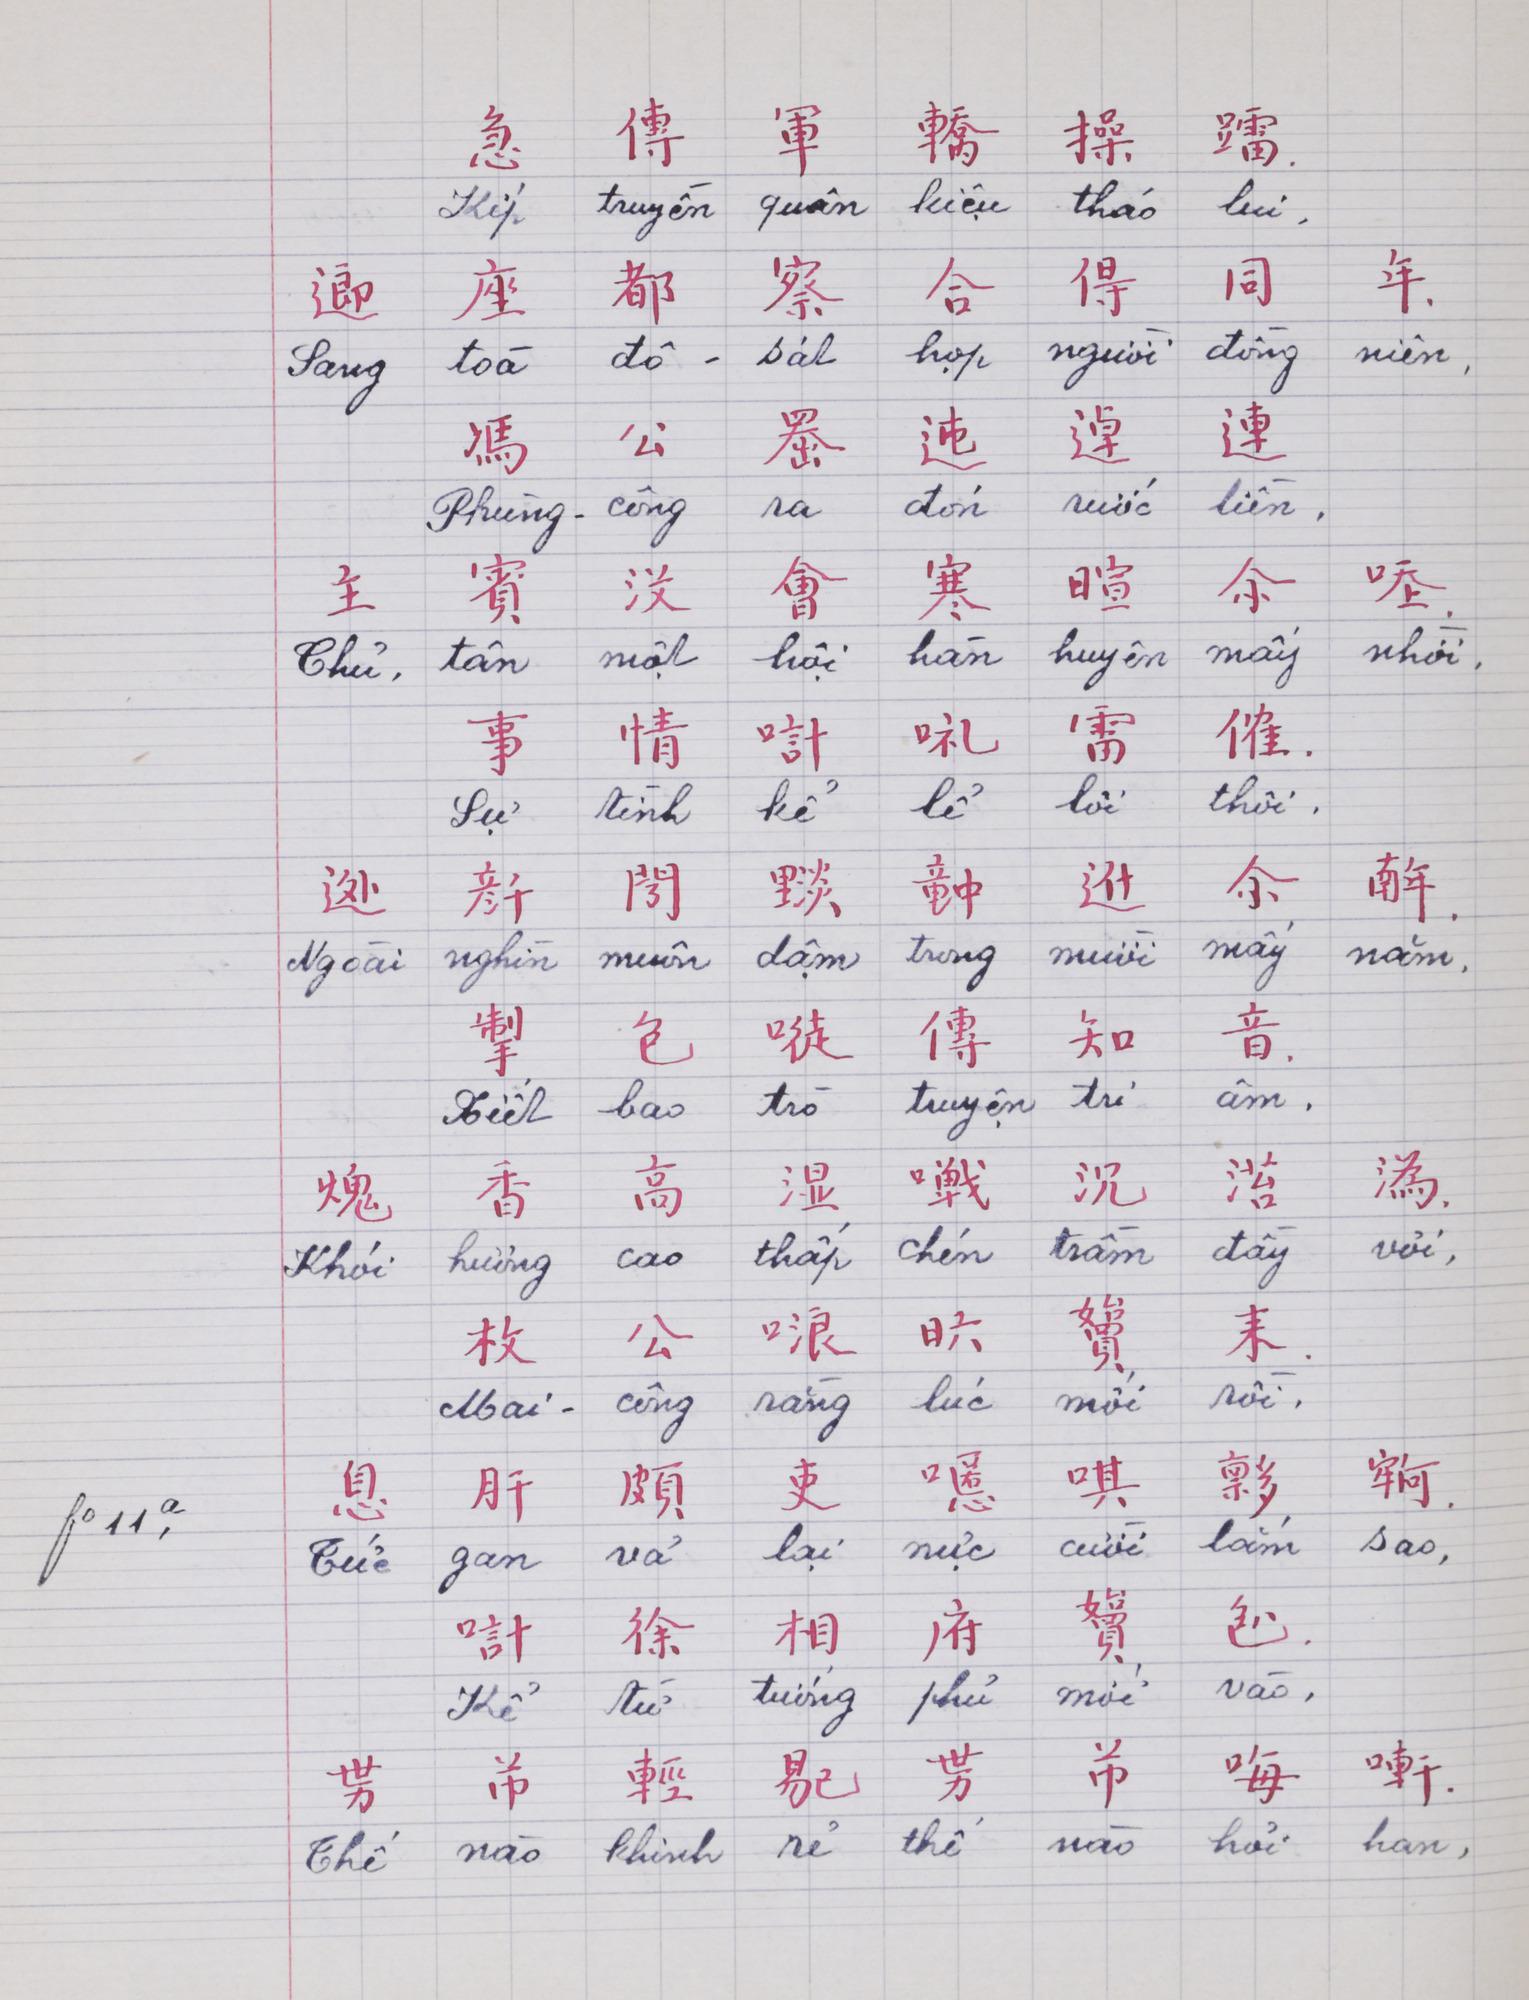 急 傳 軍 轎 操 蹓.
Kíp truyền quân kiệu tháo lui.
座 都 察 合 得 同 年.
Sang toà đô - sát họp người đồng niên,
馮 公 迍 逴 連
Phùng - công ra đón rước liền.
主 賓 沒 會 寒 暄 尒
Chủ, tân một hội hàn huyên mấy nhời,
事 情 計 礼 雷 催.
Sự tình kể lể lôi thôi.
尒
Ngoài nghìn muôn dặm trong mười mấy năm,
掣 包 傳 知 音.
Xiết bao trò truyện tri âm.
香 高 湿 沉 潙.
Khói hương cao thấp chén trầm đầy vơi,
枚 公 哴 耒.
Mai - công rằng lúc mới rồi.
fº 11ª,
息 肝 頗 吏 唭
Tức gan vả lại nực cười lắm sao,
計 徐 相 府
Kể từ tướng phủ mới vào.
輕 易 㖼
Thế nào khinh rẻ thế nào hỏi han,